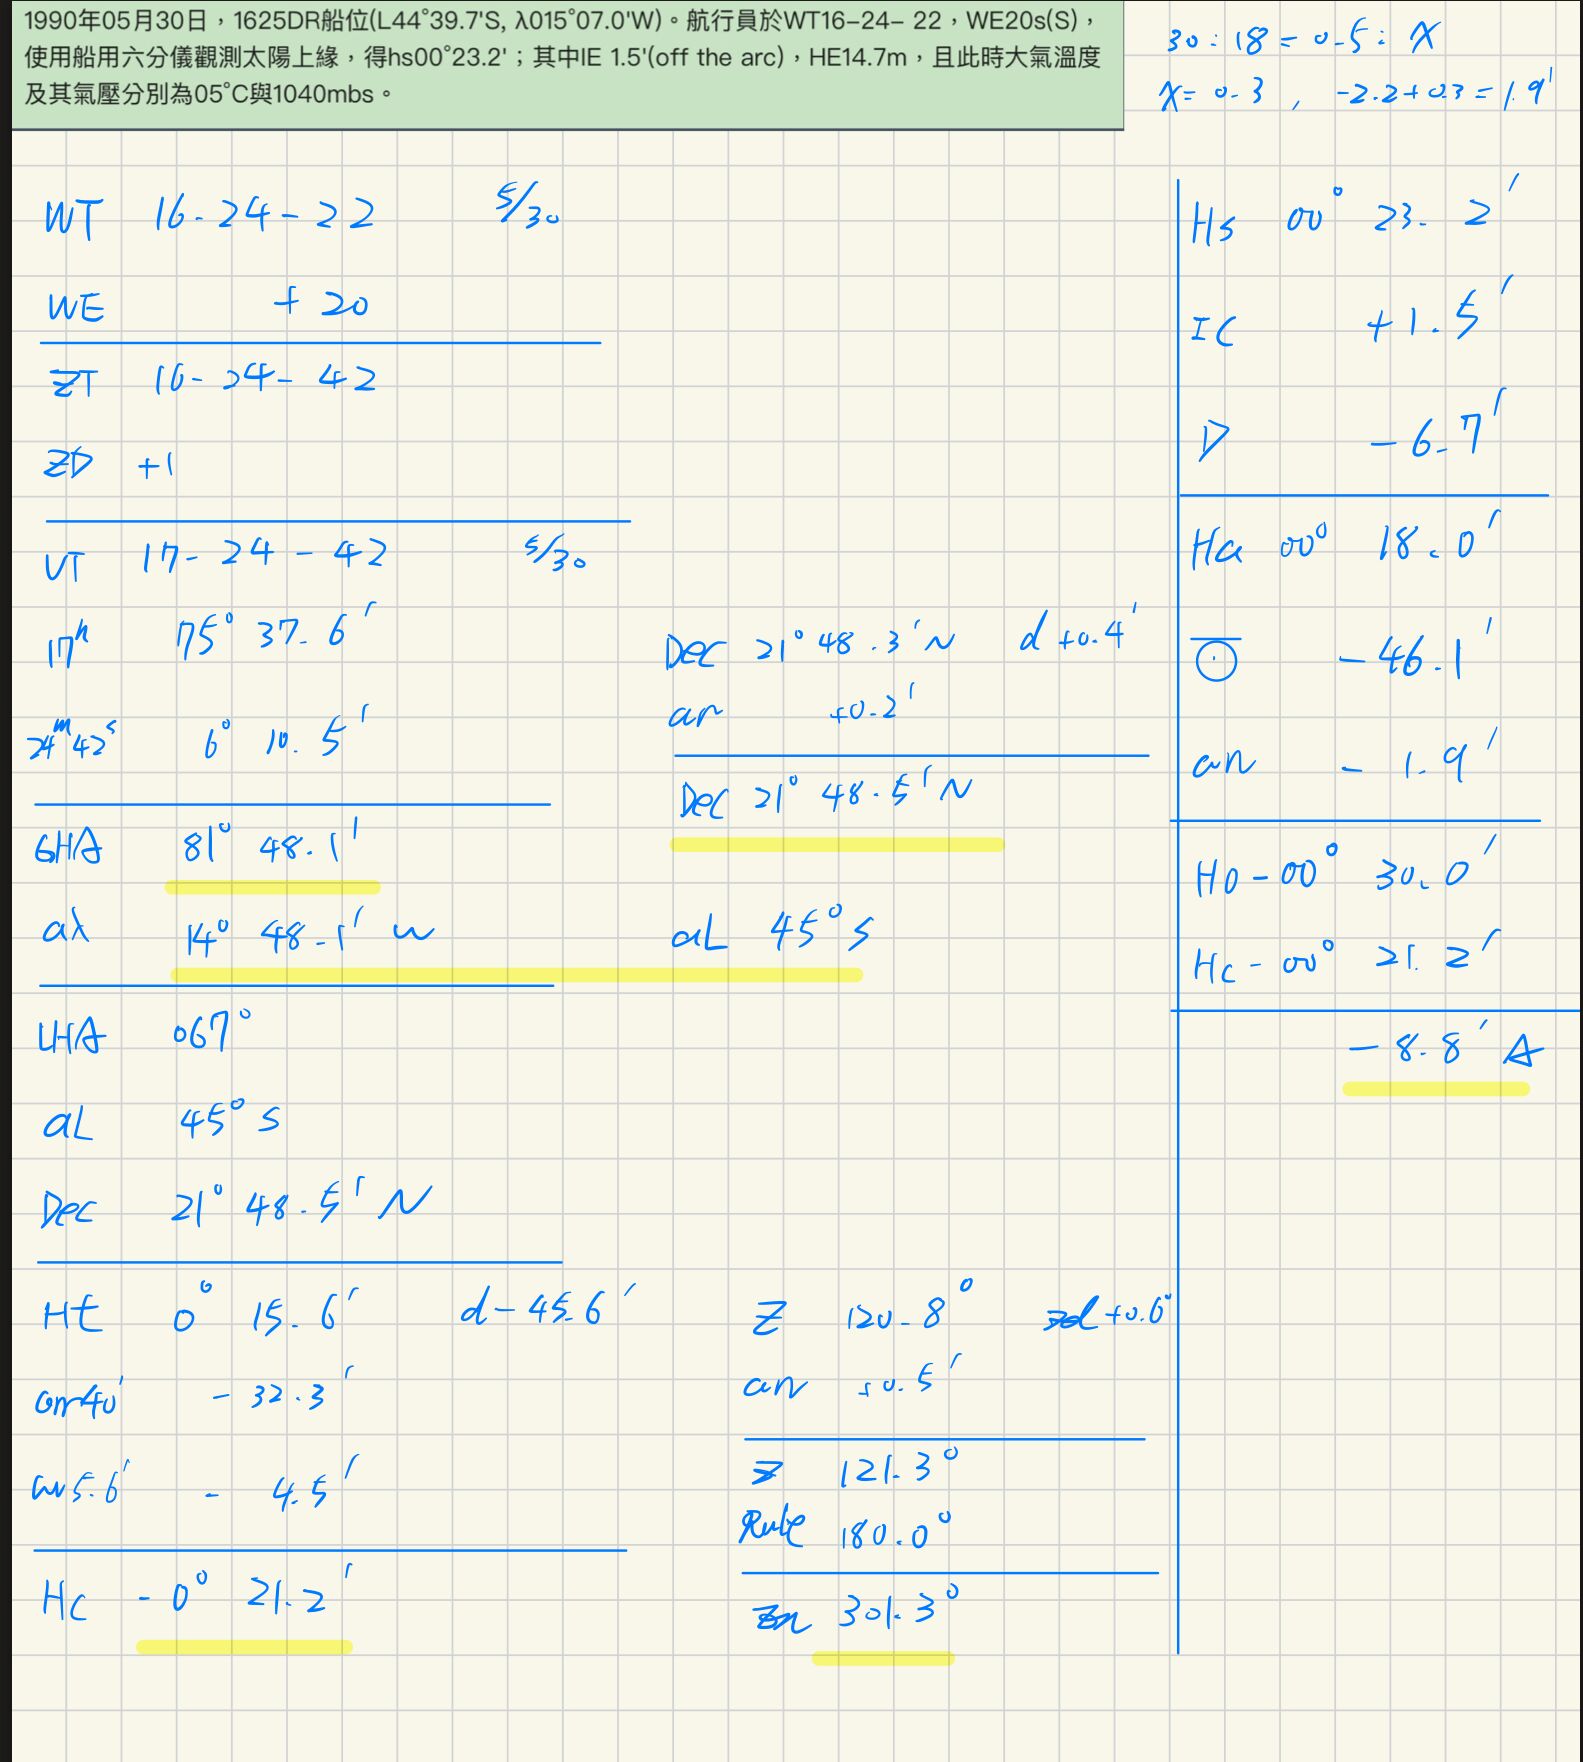 1990年05月30日，1625DR船位(L44°39.7'S, λ015°07.0'W)。航行員於WT16–24– 22，WE20s(S)，
使用船用六分儀觀測太陽上緣，得hs00°23.2'；其中IE 1.5'(off the arc)，HE14.7m，且此時大氣溫度
及其氣壓分別為05°C與1040mbs。
30 : 18 = 0.5 : X
X = 0.3 , -2.2+0.3 = 1.9'
WT 16-24-22 5/30
WE + 20
ZT 16-24-42
ZD +1
UT 17-24-42 5/30
17h 75° 37.6'
24m42s 6° 10.5'
GHA 81° 48.1'
aλ 14° 48.1' W
LHA 067°
aL 45° S
Dec 21° 48.5' N
Ht 0° 15.6' d-45.6'
corr40' -32.3'
corr5.6' - 4.5'
Hc -0° 21.2'
Dec 21° 48.3' N d +0.4'
corr +0.2'
Dec 21° 48.5' N
aL 45° S
Z 120.8° zd +0.6°
corr +0.5'
Z 121.3°
Rule 180.0°
Zn 301.3°
Hs 00° 23.2'
IC +1.5'
D -6.7'
Ha 00° 18.0'
-46.1'
corr - 1.9'
Ho -00° 30.0'
Hc -00° 21.2'
-8.8' A